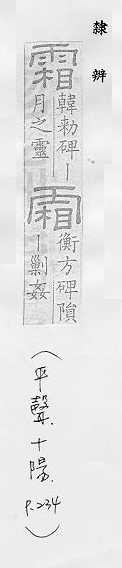 隸辨
霜韓勑碑丨
月之靈霜衡方碑隕
丨剿姦
（平聲.十陽.P.234）